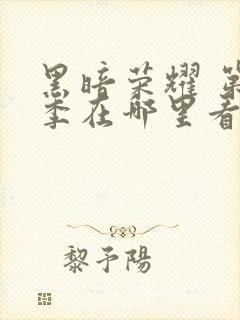 黑暗荣耀 第
季在哪里看
黎予陽